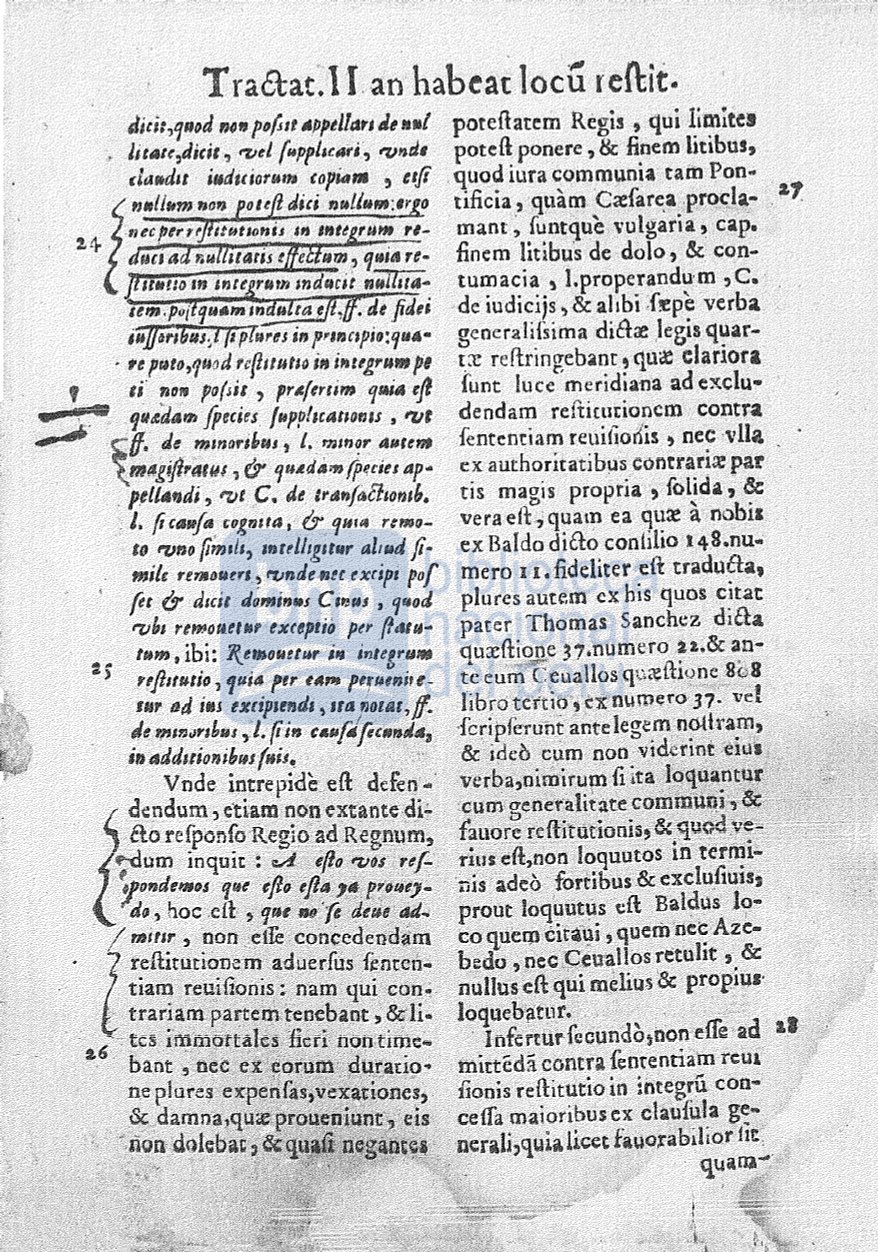 Tractat. II an habeat locū restit.
dicit, quod non possit appellari de nul
litate, dicit, vel supplicari, vnde
claudit iudiciorum copiam, etsi
nullum non potest dici nullum: ergo
24
nec per restitutionis in integrum re-
duci ad nullitatis effectum, quia re-
stitutio in integrum inducit nullita-
tem. postquam indulta est, ff. de fidei
iussoribus. l si plures in principio: qua-
re puto, quod restitutio in integrum pe
ti non possit, præsertim quia est
quædam species supplicationis, vt
ff. de minoribus, l. minor autem
magistratus, & quædam species ap-
pellandi, vt C. de transactionib.
l. si causa cognita, & quia remo-
to vno simili, intelligitur aliud si-
mile remoueri, vnde nec excipi pos
set & dicit dominus Cinus, quod
vbi remouetur exceptio per statu-
tum, ibi: Remouetur in integrum
25
restitutio, quia per eam peruenire-
tur ad ius excipiendi, ita notat, ff.
de minoribus, l. si in causa secunda,
in additionibus suis.
Vnde intrepidè est defen-
dendum, etiam non extante di-
cto responso Regio ad Regnum,
dum inquit: A esto vos res-
pondemos que esto esta ya proueỹ-
do, hoc est, que no se deue ad-
mitir, non esse concedendam
restitutionem aduersus senten-
tiam reuisionis: nam qui con-
trariam partem tenebant, & li-
tes immortales fieri non time-
26
bant, nec ex eorum duratio-
ne plures expensas, vexationes,
& damna, quæ proueniunt, eis
non dolebat, & quasi negantes
potestatem Regis, qui limites
potest ponere, & finem litibus,
quod iura communia tam Pon-
27
tificia, quàm Cæsarea procla-
mant, suntquè vulgaria, cap.
finem litibus de dolo, & con-
tumacia, l. properandum, C.
de iudicijs, & alibi sæpè verba
generalissima dictæ legis quar-
tæ restringebant, quæ clariora
sunt luce meridiana ad exclu-
dendam restitutionem contra
sententiam reuisionis, nec vlla
ex authoritatibus contrariæ par
tis magis propria, solida, &
vera est, quam ea quæ à nobis
ex Baldo dicto consilio 148. nu-
mero 11. fideliter est traducta,
plures autem ex his quos citat
pater Thomas Sanchez dicta
quæstione 37. numero 22. & an-
te eum Ceuallos quæstione 808
libro tertio, ex numero 37. vel
scripserunt ante legem nostram,
& ideò cum non viderint eius
verba, nimirum si ita loquantur
cum generalitate communi, &
fauore restitutionis, & quod ve-
rius est, non loquutos in termi-
nis adeò fortibus & exclusiuis,
prout loquutus est Baldus lo-
co quem citaui, quem nec Aze-
bedo, nec Ceuallos retulit, &
nullus est qui melius & propius
loquebatur.
Infertur secundò, non esse ad
28
mittēdā contra sententiam reui
sionis restitutio in integrū con-
cessa maioribus ex clausula ge-
nerali, quia licet fauorabilior sit
quam-
bnp biblioteca
nacional
del perú